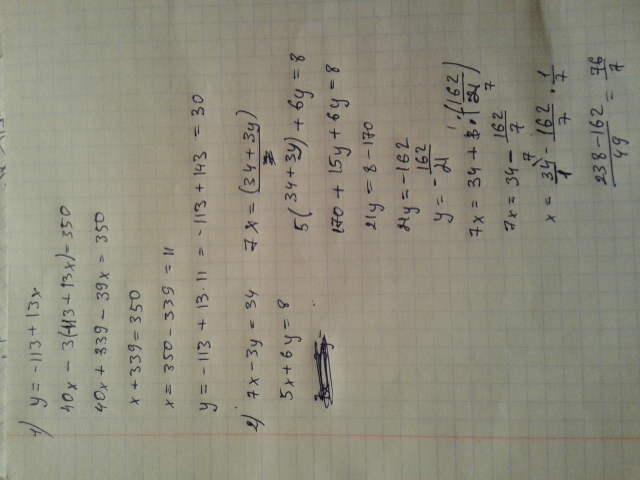 1) y = -113 + 13x
40x - 3(-113 + 13x) = 350
40x + 339 - 39x = 350
x + 339 = 350
x = 350 - 339 = 11
y = -113 + 13 · 11 = -113 + 143 = 30
2) 7x - 3y = 34
5x + 6y = 8
7x = (34 + 3y)
5(34 + 3y) + 6y = 8
170 + 15y + 6y = 8
21y = 8 - 170
21y = -162
y = - 162/21
7x = 34 + 3 · (162/21)
7x = 34 - 162/7
x = 34/1 - 162/7 · 1/7
238 - 162/49 = 76/7